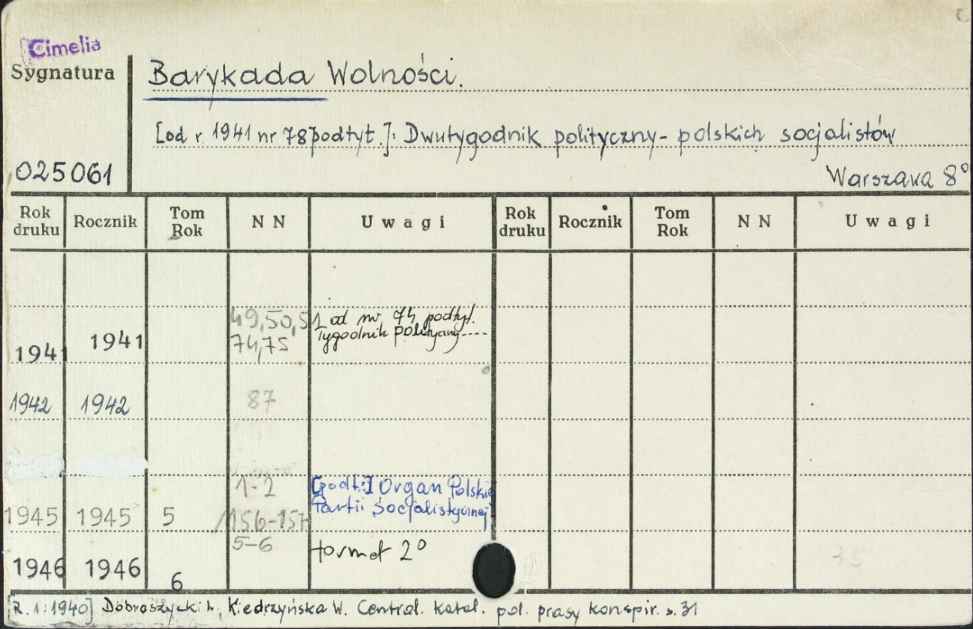 Cimelia
Sygnatura
Barykada Wolności.
[od r 1941 nr 78 podtyt.]: Dwutygodnik polityczny - polskich socjalistów
025061
Warszawa 8°
Rok druku Rocznik Tom Rok N N Uwagi Rok druku Rocznik Tom Rok N N Uwagi
49,50,51 od nr. 74 podtyt.
1941 1941 74,75 Tygodnik polityczny
1942 1942 87
1-2 [podt.:] Organ Polskiej
1945 1945 5 156-157 Partii Socjalistycznej
5-6 format 2°
1946 1946 6
[R. 1: 1940] Dobroszycki L, Kiedrzyńska W. Central. katal. pol. prasy konspir. s. 31